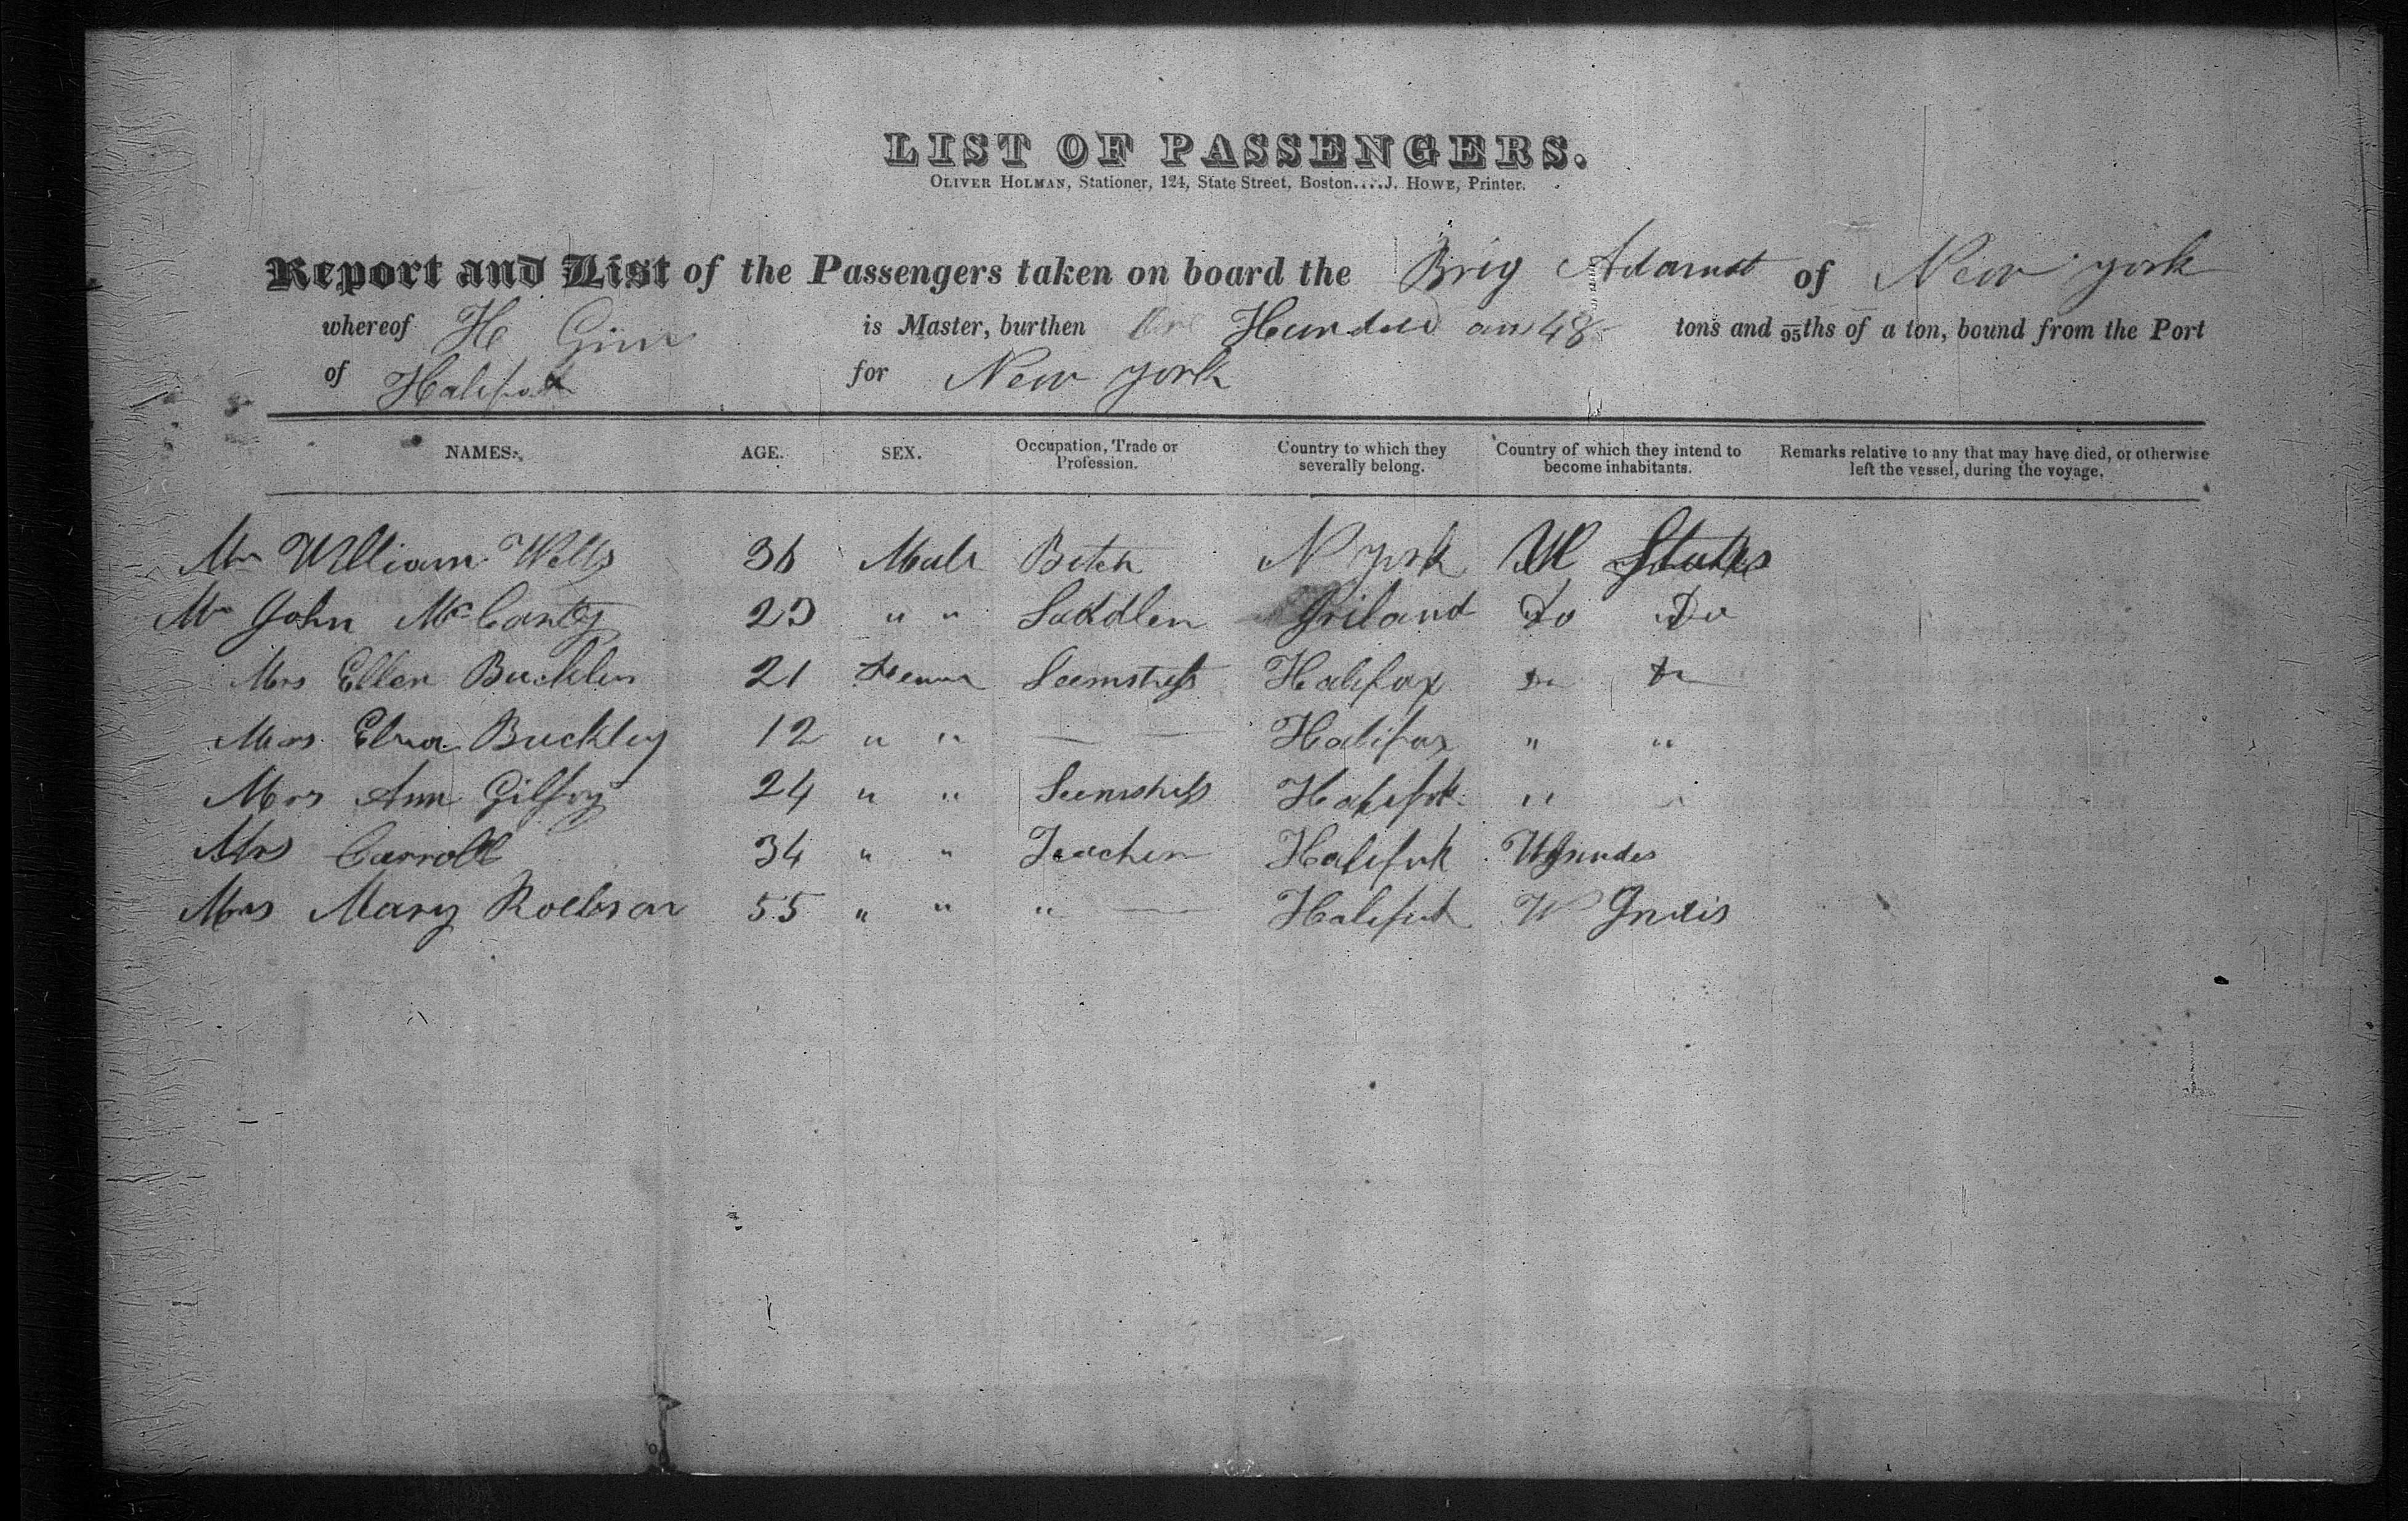 LIST OF PASSENGERS.
OLIVER HOLMAN, Stationer, 124, State Street, Boston....J. HOWE, Printer.
Report and List of the Passengers taken on board the Brig of New york
whereof H is Master, burthen Hundred an 48 tons and 95ths of a ton, bound from the Port
of Halifax for New york
NAMES. AGE. SEX. Occupation, Trade or Profession. Country to which they severally belong. Country of which they intend to become inhabitants. Remarks relative to any that may have died, or otherwise left the vessel, during the voyage.
Mr William Wells 36 Male N york U States
Mr John McCarty 23 " " Saddler Iriland Do Do
Mrs Ellen 21 Seemstress Halifax
Buckley 12 " " — — Halifax " "
Mrs Ann Gilfoy 24 " " Seemstress " "
Mrs Carroll 34 " " Teacher
Mrs Mary 55 " " " — W Indis